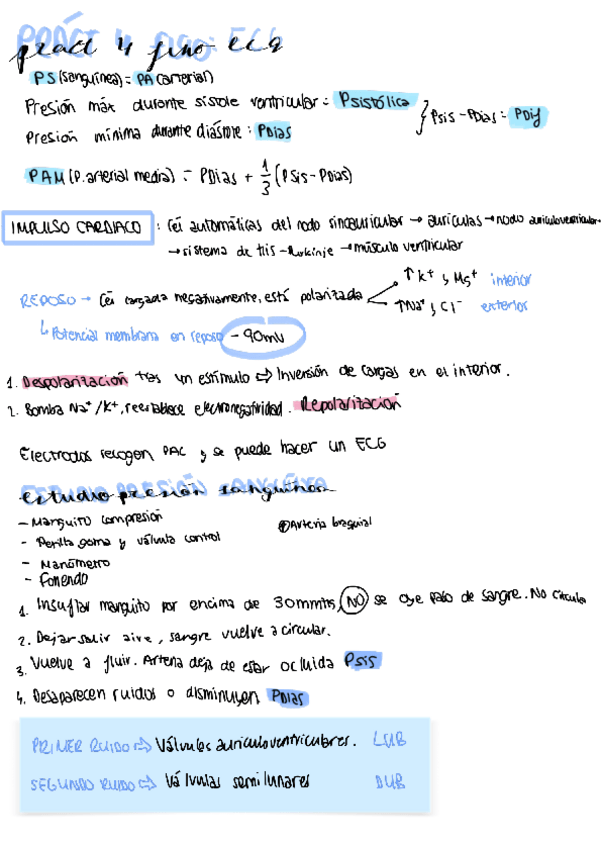 PRÁCT 4 FISIO: ECG
pract 4 fisio ecg
PS (sanguínea) = PA (arterial)
Presión máx durante sístole ventricular = Psistólica
Presión mínima durante diástole : PDias
} Psis - PDias = PDif
PAM (P. arterial media) = PDias + 1/3 (Psis - PDias)
IMPULSO CARDIACO : Cél automáticas del nodo sinoauricular → aurículas → nodo auriculoventricular
→ sistema de His - Purkinje → músculo ventricular
REPOSO → Cél cargada negativamente, está polarizada
↑ K+ y Mg+ interior
↑ Na+ y Cl- exterior
↳ Potencial membrana en reposo - 90mV
1. Despolarización tras un estímulo ⇨ Inversión de cargas en el interior.
2. Bomba Na+ / K+, reestablece electronegatividad. Repolarización
Electrodos recogen PAC y se puede hacer un ECG
ESTUDIO PRESIÓN SANGUÍNEA
estudio presión sanguínea
- Manguito compresión
- Perilla goma y válvula control
- Manómetro
- Fonendo
Arteria braquial
1. Insuflar manguito por encima de 30mmHg, NO se oye paso de sangre. No circula
2. Dejar salir aire, sangre vuelve a circular.
3. Vuelve a fluir. Arteria deja de estar ocluida Psis
4. Desaparecen ruidos o disminuyen PDias
PRIMER RUIDO ⇨ Válvulas auriculoventriculares. LUB
SEGUNDO RUIDO ⇨ Válvulas semilunares DUB